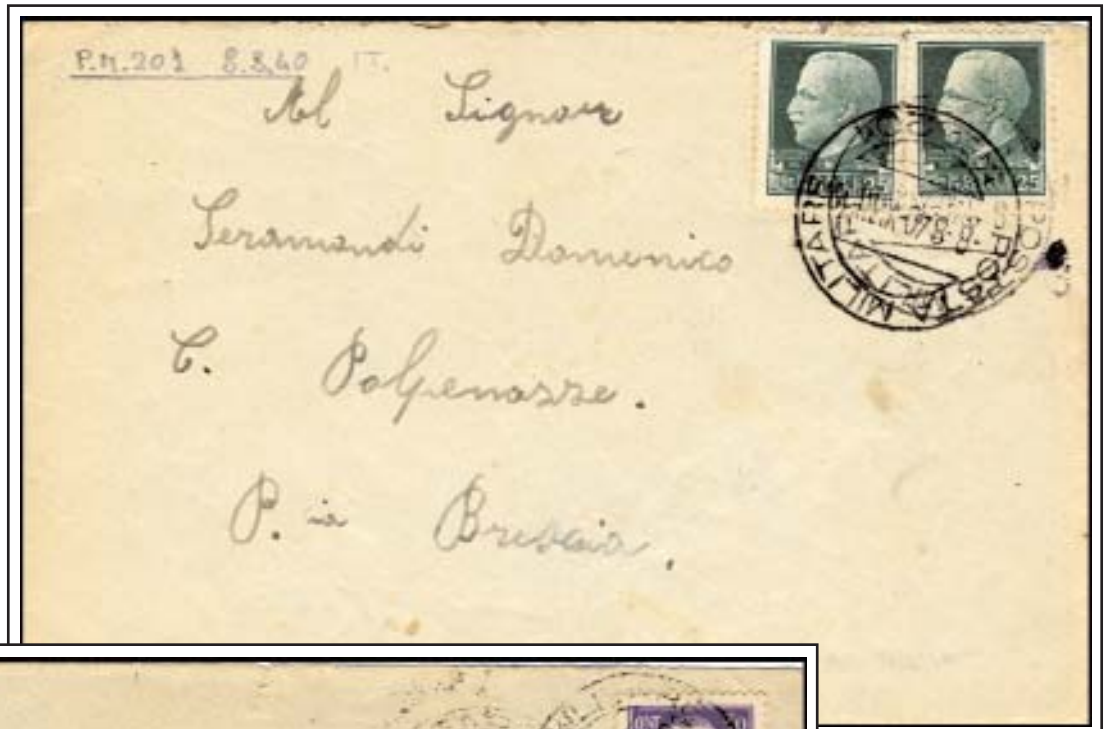 P.M.201 8.8.40 IT.
Al Signor
Seramondi Domenico
C. Polpenazze.
P.ia Brescia.
25 25
POSTA MILITARE
-8.8.40.XVIII